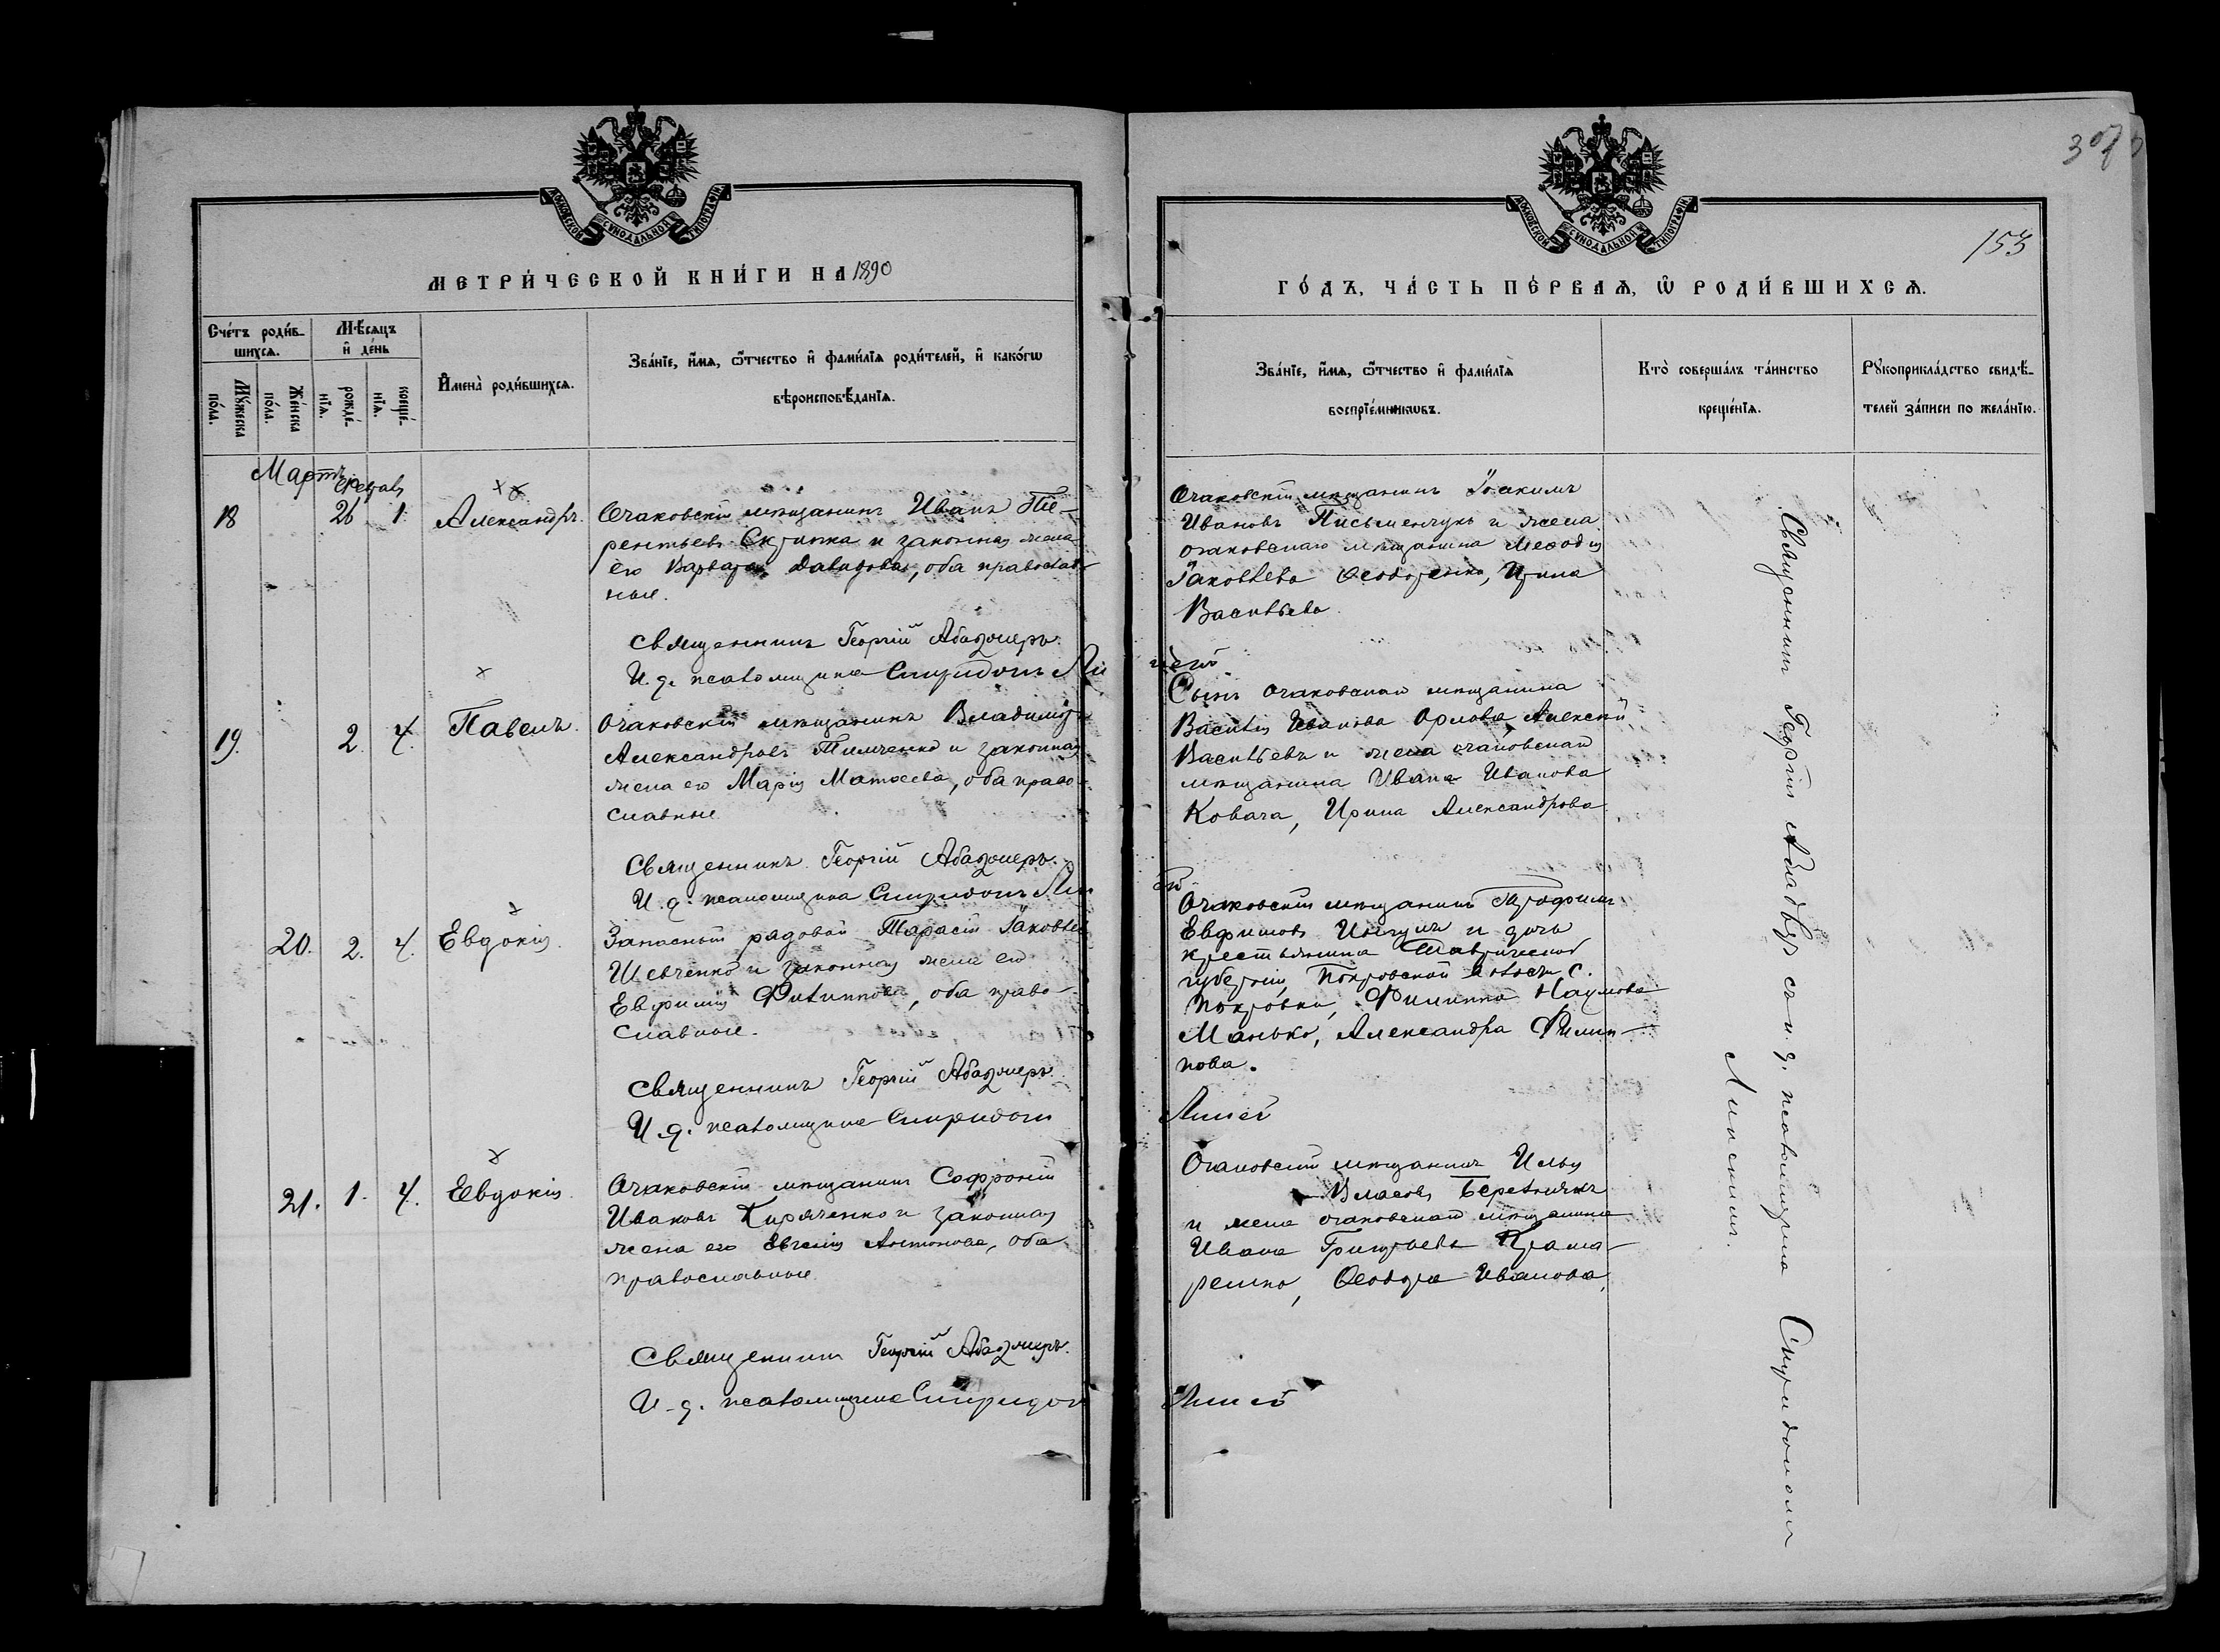 МОСКОВСКОЙ СѴНОДАЛЬНОЙ ТИПОГРАФІИ
МЕТРИ́ЧЕСКОЙ КНИ́ГИ НА 1890
Сче́тъ роди́в-
шихсѧ.
Мꙋ́жеска
по́ла.
Же́нска
по́ла.
Мѣ́сѧцъ
и҆ де́нь
рожде́-
нїѧ.
креще́-
нїѧ.
И҆мена̀ роди́вшихсѧ.
Зва́нїе, и҆́мѧ, ѻ҆́тчество и҆ фами́лїѧ роди́телей, и҆ како́гѡ
вѣроисповѣ́данїѧ.
Мартъ
18
26
1.
Александръ.
Очаковскій мѣщанинъ Иванъ Те-
рентьевъ Скрипка и законная жена
его Варвара Давидова, оба православ-
ные.
Священникъ Георгій
И. д. псаломщика Спиридонъ Ли
19.
2.
4.
Павелъ.
Очаковскій мѣщанинъ Владиміръ
Александровъ Тимченко и законная
жена его Марія Матѳеева, оба право-
славные
Священникъ Георгій
И. д. псаломщика Спиридонъ Ли
20.
2.
4.
Евдокія.
Запасный рядовой Тарасій Іаковлев
Шевченко и законная жена его
Евфимія Филиппова, оба право-
славные.
Священникъ Георгій
И. д. псаломщика Спиридонъ
21.
1.
4.
Евдокія.
Очаковскій мѣщанинъ Софроній
Ивановъ Киряченко и законная
жена его Евгенія Антонова, оба
православные
Священникъ Георгій
И. д. псаломщика Спиридон
307
153
МОСКОВСКОЙ СѴНОДАЛЬНОЙ ТИПОГРАФІИ
ГО́ДЪ, ЧА́СТЬ ПЕ́РВАѦ, Ѡ҆ РОДИ́ВШИХСѦ.
Зва́нїе, и҆́мѧ, ѻ҆́тчество и҆ фами́лїѧ
воспрїе́мникѡвъ.
Кто̀ соверша́лъ та́инство
креще́нїѧ.
Рꙋкоприкла́дство свидѣ́-
телей за́писи по жела́нїю.
Очаковскій мѣщанинъ Іоакимъ
Ивановъ Письменчукъ и жена
очаковскаго мѣщанина Меѳодія
Іаковлева Ѳеодоренко, Ирина
Васильева
Сынъ очаковскаго мѣщанина
Василія Иванова Орлова, Алексій
Васильевъ и жена очаковскаго
мѣщанина Ивана Иванова
Ковача, Ирина Александрова
Очаковскій мѣщанинъ Трофимъ
Евфимовъ и дочь
крестьянина Таврической
губерніи, Покровской волости, с.
Покровки, Филиппа Наумова
Манько, Александра Филип-
пова.
Очаковскій мѣщанинъ Илья
Власовъ
и жена очаковскаго мѣщанина
Ивана Григорьева Крама-
ренко, Ѳеодора Иванова,
Священникъ Георгій съ и. д. псаломщика Спиридономъ